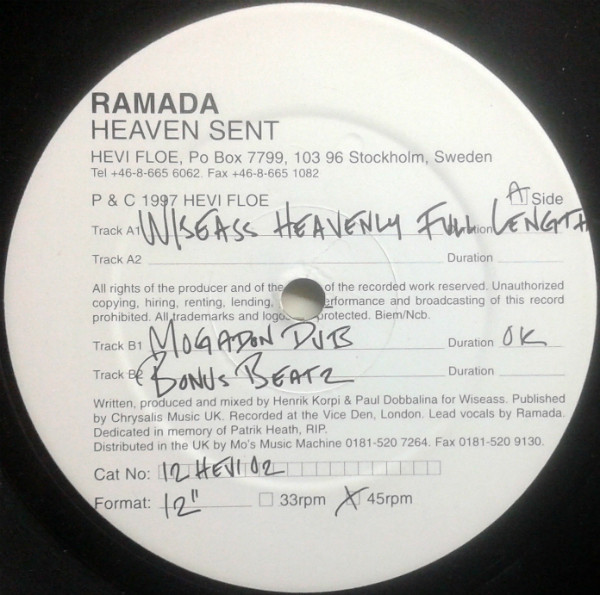 RAMADA
HEAVEN SENT
HEVI FLOE, Po Box 7799, 103 96 Stockholm, Sweden
Tel +46-8-665 6062. Fax +46-8-665 1082
P & C 1997 HEVI FLOE A Side
Track A1 WISEASS HEAVENLY FULL LENGTH Duration
Track A2 Duration
All rights of the producer and of the of the recorded work reserved. Unauthorized
copying, hiring, renting, lending, erformance and broadcasting of this record
prohibited. All trademarks and logo protected. Biem/Ncb.
Track B1 MOGADON DUB Duration OK
Track B2 BONUS BEATZ Duration
Written, produced and mixed by Henrik Korpi & Paul Dobbalina for Wiseass. Published
by Chrysalis Music UK. Recorded at the Vice Den, London. Lead vocals by Ramada.
Dedicated in memory of Patrik Heath, RIP.
Distributed in the UK by Mo's Music Machine 0181-520 7264. Fax 0181-520 9130.
Cat No: 12 HEVI 02
Format: 12" 33rpm X 45rpm